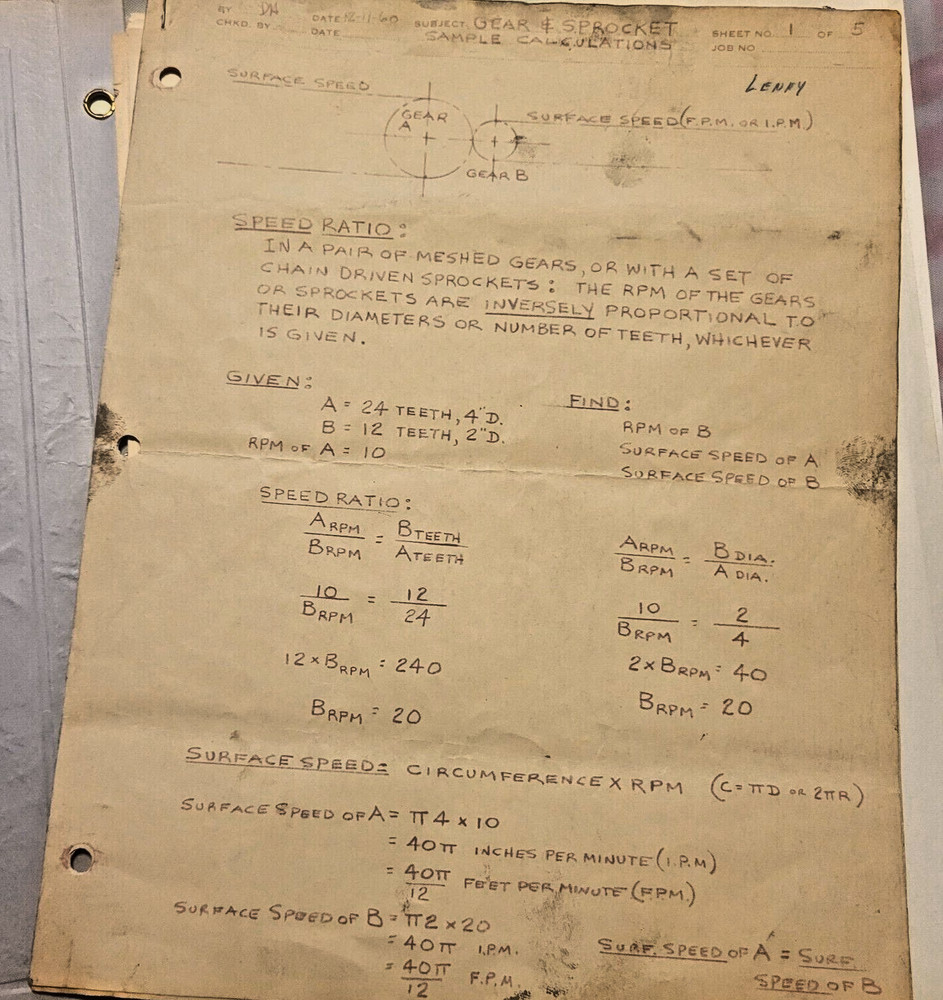 BY DH DATE 12-11-60 SUBJECT GEAR & SPROCKET SHEET NO. 1 OF 5
CHKD. BY DATE SAMPLE CALCULATIONS JOB NO.
LENNY
SURFACE SPEED
GEAR
A
SURFACE SPEED (F.P.M. OR I.P.M.)
GEAR B
SPEED RATIO:
IN A PAIR OF MESHED GEARS, OR WITH A SET OF
CHAIN DRIVEN SPROCKETS: THE RPM OF THE GEARS
OR SPROCKETS ARE INVERSELY PROPORTIONAL TO
THEIR DIAMETERS OR NUMBER OF TEETH, WHICHEVER
IS GIVEN.
GIVEN:
A = 24 TEETH, 4"D.
B = 12 TEETH, 2"D.
RPM OF A = 10
FIND:
RPM OF B
SURFACE SPEED OF A
SURFACE SPEED OF B
SPEED RATIO:
A RPM / B RPM = B TEETH / A TEETH
10 / B RPM = 12 / 24
12 × B RPM = 240
B RPM = 20
A RPM / B RPM = B DIA. / A DIA.
10 / B RPM = 2 / 4
2 × B RPM = 40
B RPM = 20
SURFACE SPEED = CIRCUMFERENCE X RPM (C = πD OR 2πR)
SURFACE SPEED OF A = π4 × 10
= 40π INCHES PER MINUTE (I.P.M)
= 40π / 12 FEET PER MINUTE (F.P.M.)
SURFACE SPEED OF B = π2 × 20
= 40π I.P.M.
= 40π / 12 F.P.M.
SURF. SPEED OF A = SURF.
SPEED OF B